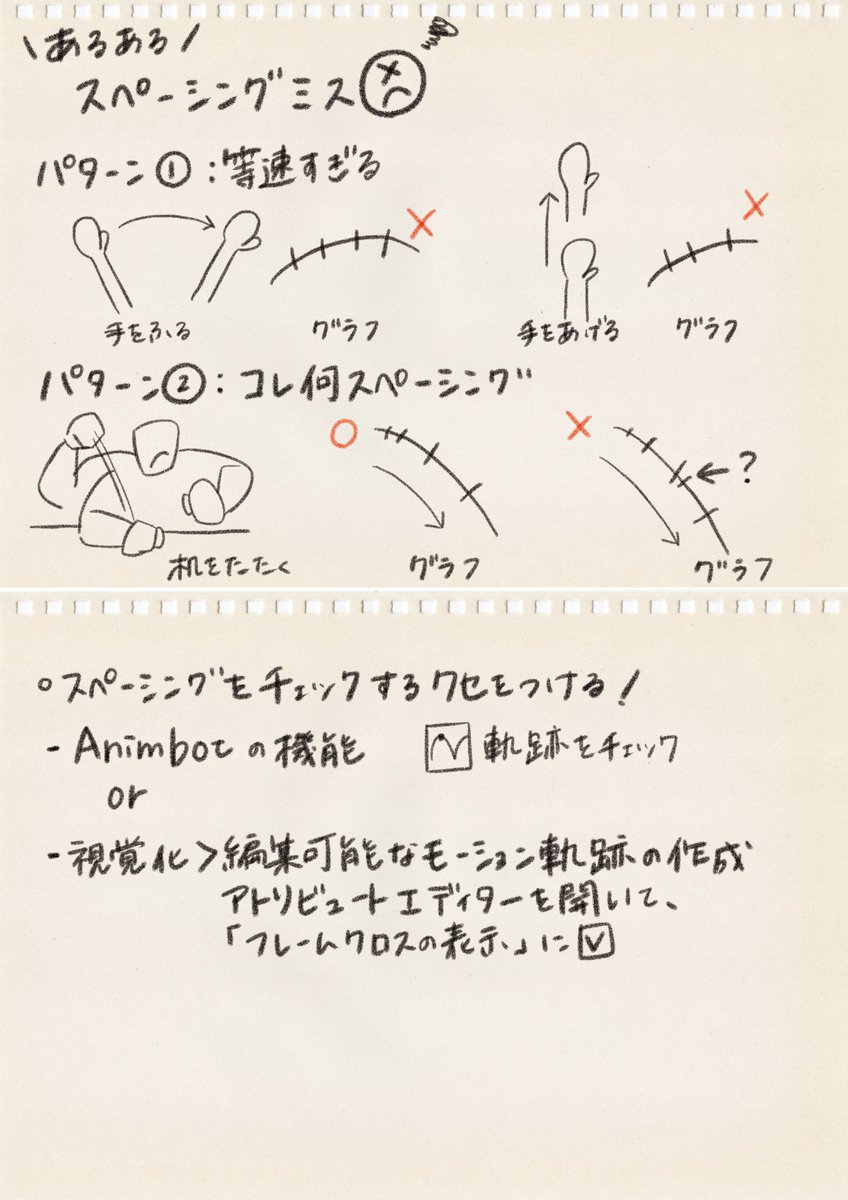 \ あるある /
スペーシングミス
パターン①:等速すぎる
手をふる
グラフ
手をあげる
グラフ
パターン②:コレ何スペーシング
?
机をたたく
グラフ
グラフ
○スペーシングをチェックするクセをつける!
- Animbotの機能 軌跡をチェック
or
- 視覚化>編集可能なモーション軌跡の作成
アトリビュートエディターを開いて、
「フレームクロスの表示」に☑